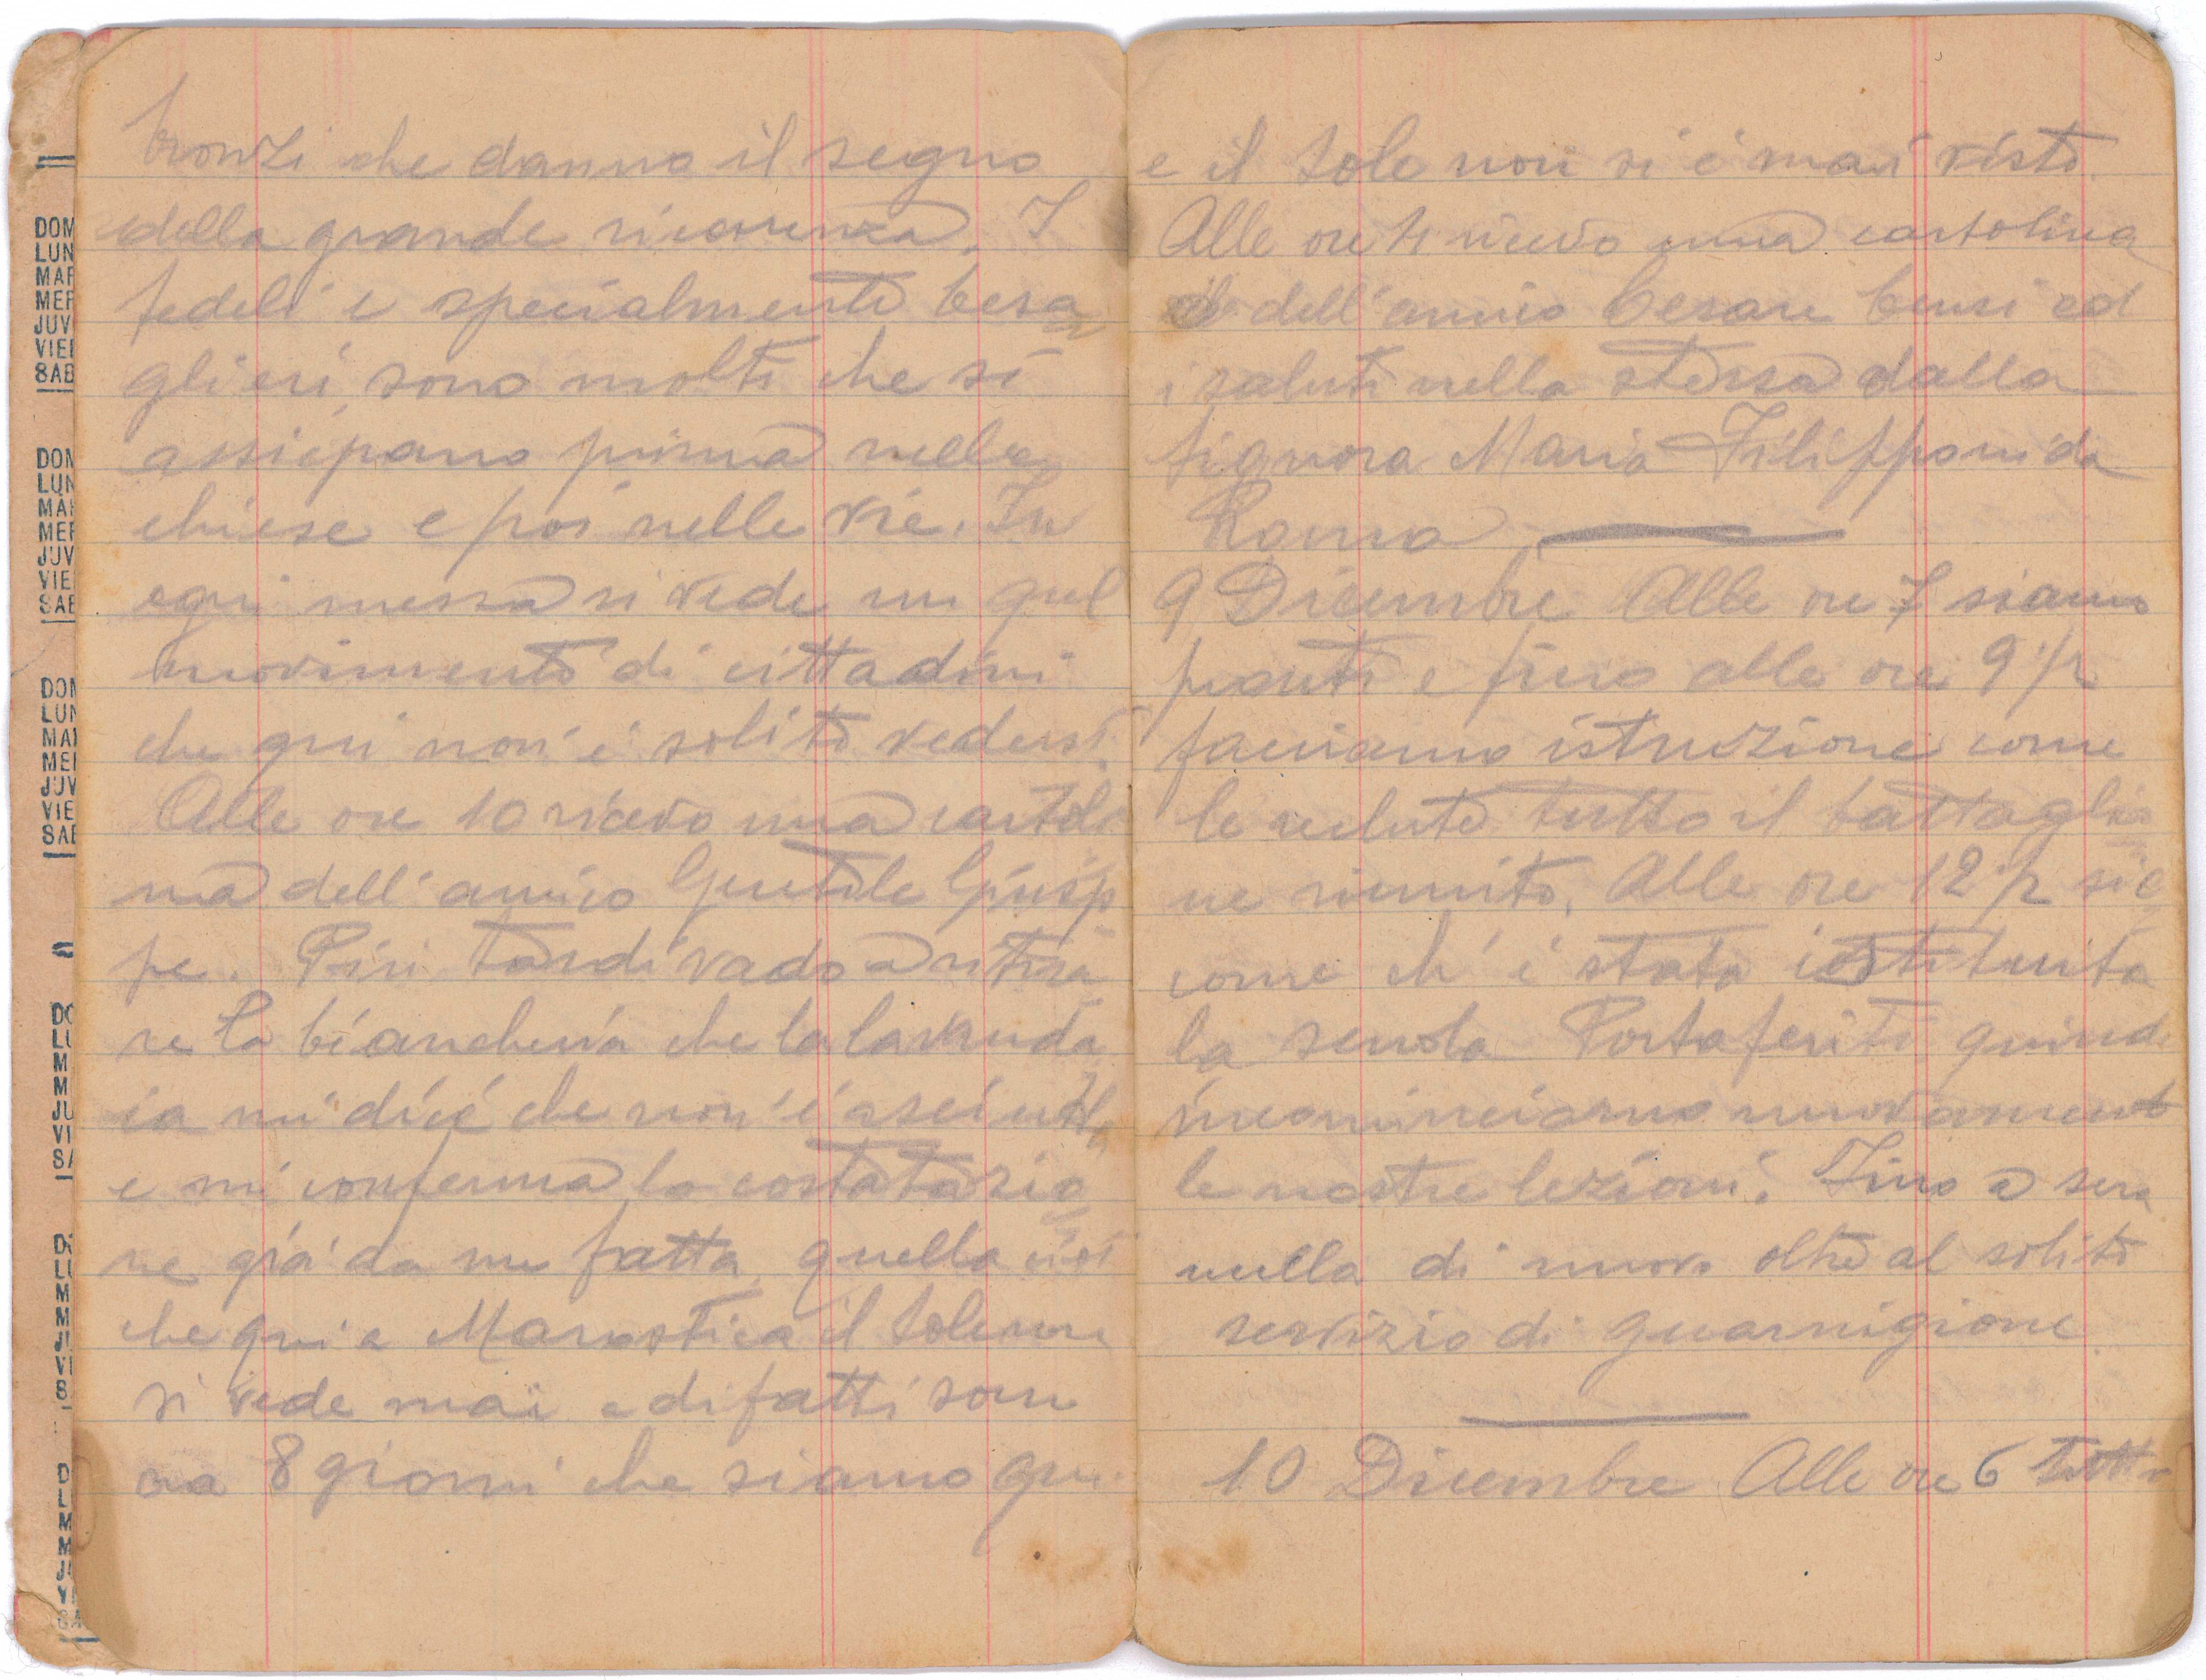 DOM
LUN
MAR
MER
JUV
VIE
SAB
DOM
LUN
MAR
MER
JUV
VIE
SAB
DOM
LUN
MAR
MER
JUV
VIE
SAB
bronzi che danno il segno
della grande ricorrenza. I
fedeli e specialmente bersa
glieri sono molti che si
assiepano prima nelle
chiese e poi nelle vie. In
ogni messa si vede un quel
movimento di cittadini
che qui non é solito vedersi.
Alle ore 10 ricevo una cartoli
na dell'amico Gentile Giusep
pe. Piú tardi vado a ritira
re la biancheria che la lavanda
ia mi dice che non é asciutta
e mi conferma la costatazio
ne giá da me fatta, quella cioé
che qui a Marostica il sole non
si vede mai e difatti sono
ora 8 giorni che siamo qui
e il sole non si é mai visto.
Alle ore 4 ricevo una cartolina
dell'amico Cesare Censi ed
i saluti nella stessa dalla
signora Maria Filipponi da
Roma
9 Dicembre Alle ore 7 siamo
pronti e fino alle ore 9 ½
facciamo istruzione come
le reclute tutto il battaglio
ne riunito. Alle ore 12 ½ sic
come ch' é stata istituita
la scuola Portaferiti quindi
incominciamo nuovamente
le nostre lezioni. Fino a sera
nulla di nuovo oltre al solito
servizio di guarnigione.
10 Dicembre Alle ore 6 tutti